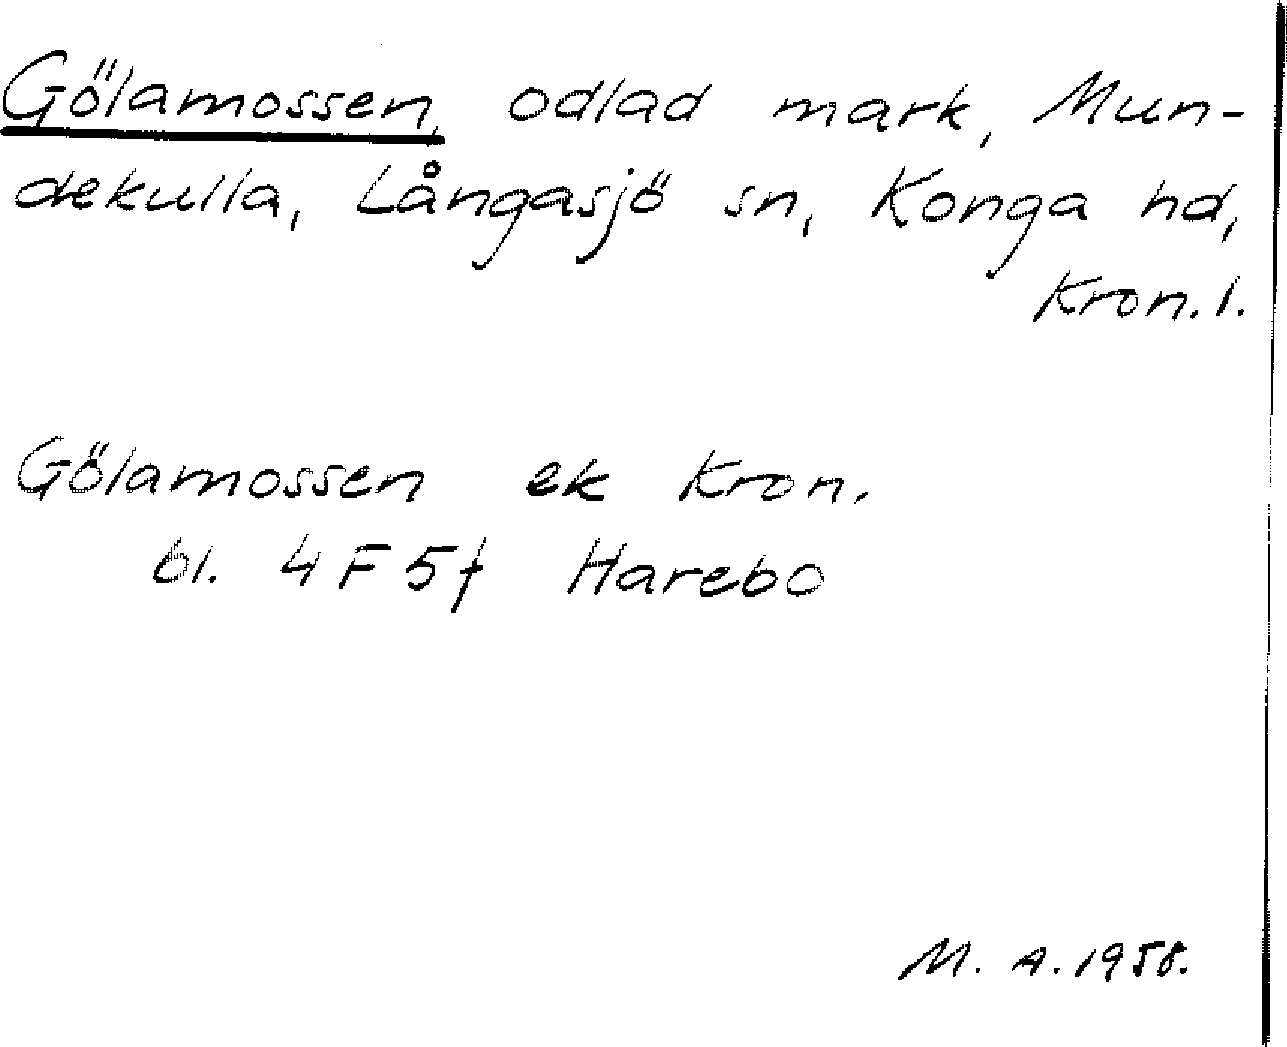 Gölamossen, odlad mark, Mun-
dekulla, Långasjö sn, Konga hd,
Kron. l.
Gölamossen ek Kron.
bl. 4 F 5 f Harebo
M. A. 1958.